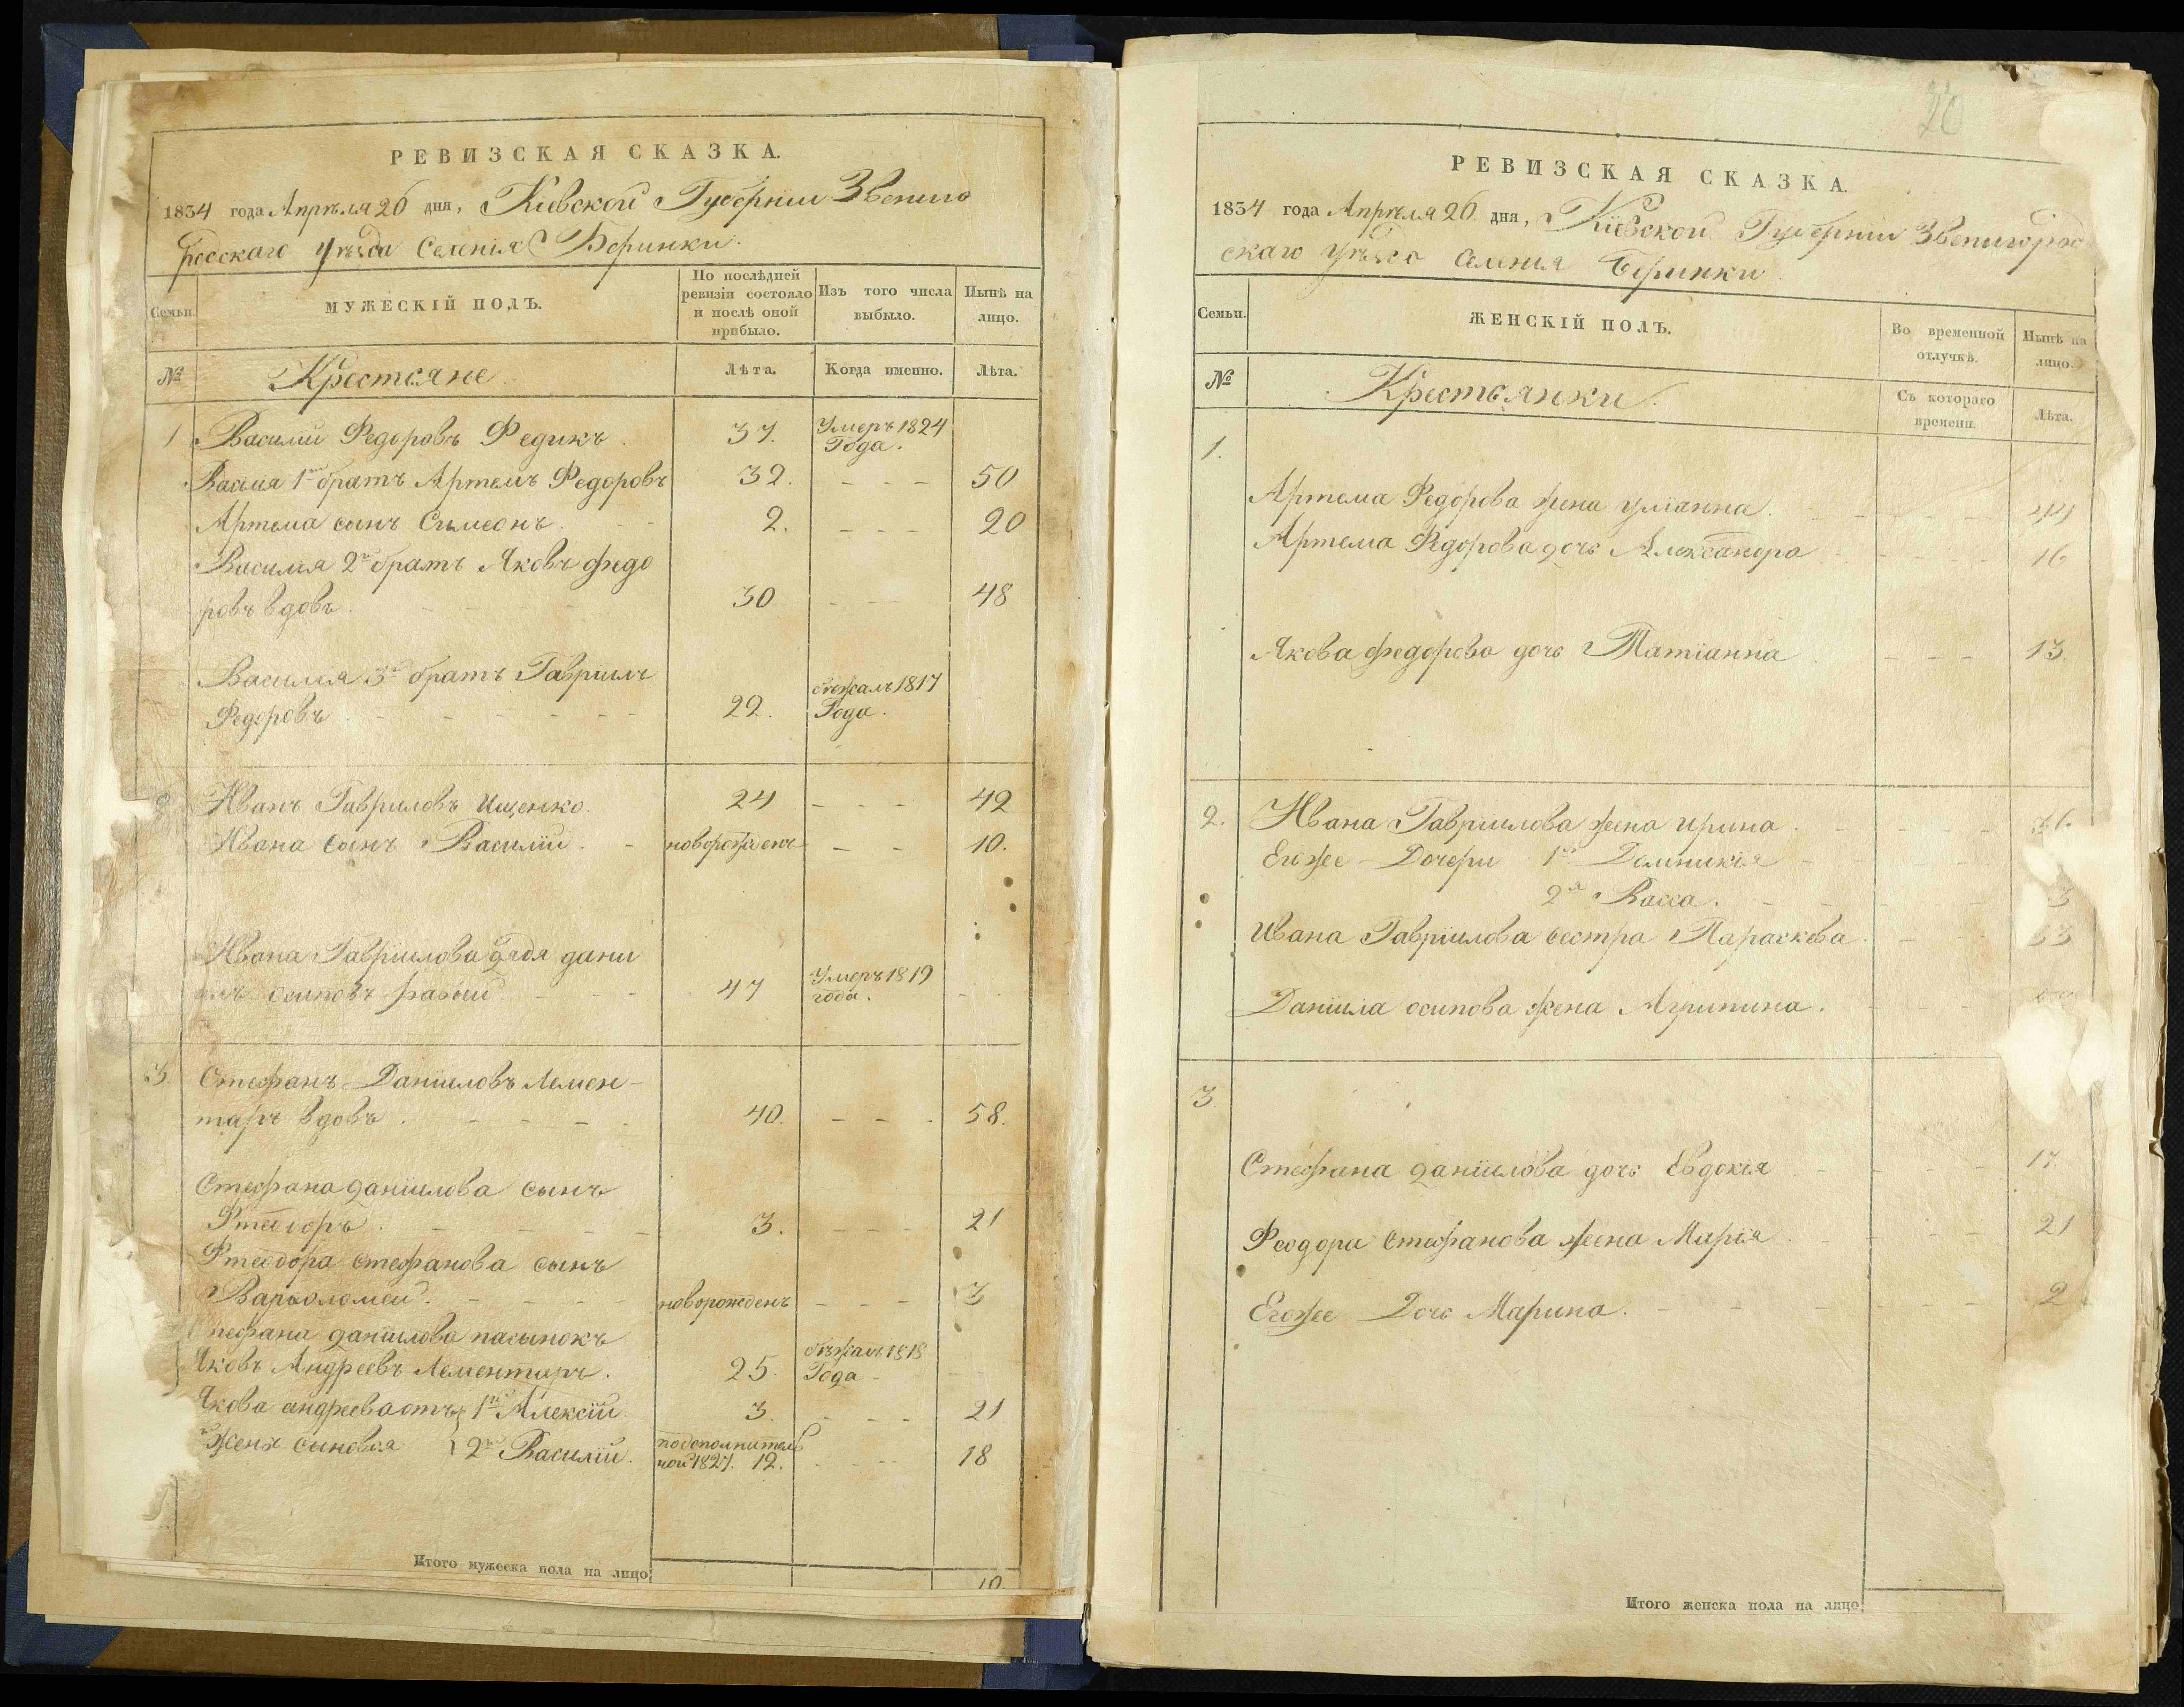 РЕВИЗСКАЯ СКАЗКА.
1834 года Апрѣля 26 дня, Кіевской Губерніи Звениго
родскаго уѣзда Селенія Беринки.
Семьи.
МУЖЕСКІЙ ПОЛЪ.
По послѣдней ревизіи состояло и послѣ оной прибыло.
Изъ того числа выбыло.
Нынѣ на лицо.
№
Крестьяне
Лѣта.
Когда именно.
Лѣта.
1 Василій Федоровъ Федикъ. 37. Умеръ 1824 Года.
Василія 1й братъ Артемъ Федоровъ 32. - - - 50
Артема сынъ Симеонъ. 2. - - - 20
Василія 2й братъ Яковъ федо
ровъ вдовъ. 30 - - - 48
Василія 3й братъ Гаврилъ
Федоровъ 22. бѣжалъ 1817 Года.
Иванъ Гавриловъ Ищенко. 24 - - - 42
Ивана сынъ Василій. - новорожденъ - - 10.
Ивана Гавріилова дядя дани
илъ осиповъ 47 Умеръ 1819 года.
3. Стефанъ Даніиловъ Лемен-
таръ вдовъ. 40. - - - 58.
Стефана даніилова сынъ
3. - - - 21
стефанова сынъ
Варфоломей. новорожденъ - - - 3
даніилова пасынокъ
Яковъ Андреевъ Лементаръ. 25. бѣжалъ 1818 Года
Якова андреева отъ 1й Алексій 3. - - - 21
жены сыновья 2й Василій. подополнитель ной 1827. 12. - - - 18
Итого мужеска пола на лицо 10.
20
РЕВИЗСКАЯ СКАЗКА.
1834 года Апрѣля 26 дня, Кіевской Губерніи Звенигород
скаго уѣзда Селенія Беринки
Семьи.
ЖЕНСКІЙ ПОЛЪ.
Во временной отлучкѣ.
Нынѣ на лицо.
№
Крестьянки.
Съ котораго времени.
Лѣта.
1.
Артема Федорова жена уліанна. - - - 44
Артема Федорова дочь Александра - - - 16
Якова федорова дочь Татіанна - - - 13.
2. Ивана Гавріилова жена ирина.
Егожее Дочери 1я Домникія
2я Васса. 3
Ивана Гавріилова сестра Параскева. 33
Даніила осипова жена Агрипина.
3.
Стефана даніилова дочь Евдокія - - - 17.
Феодора Стефанова жена Марія - - - 21
Егожее Дочь Марина. - - - 2
Итого женска пола на лицо